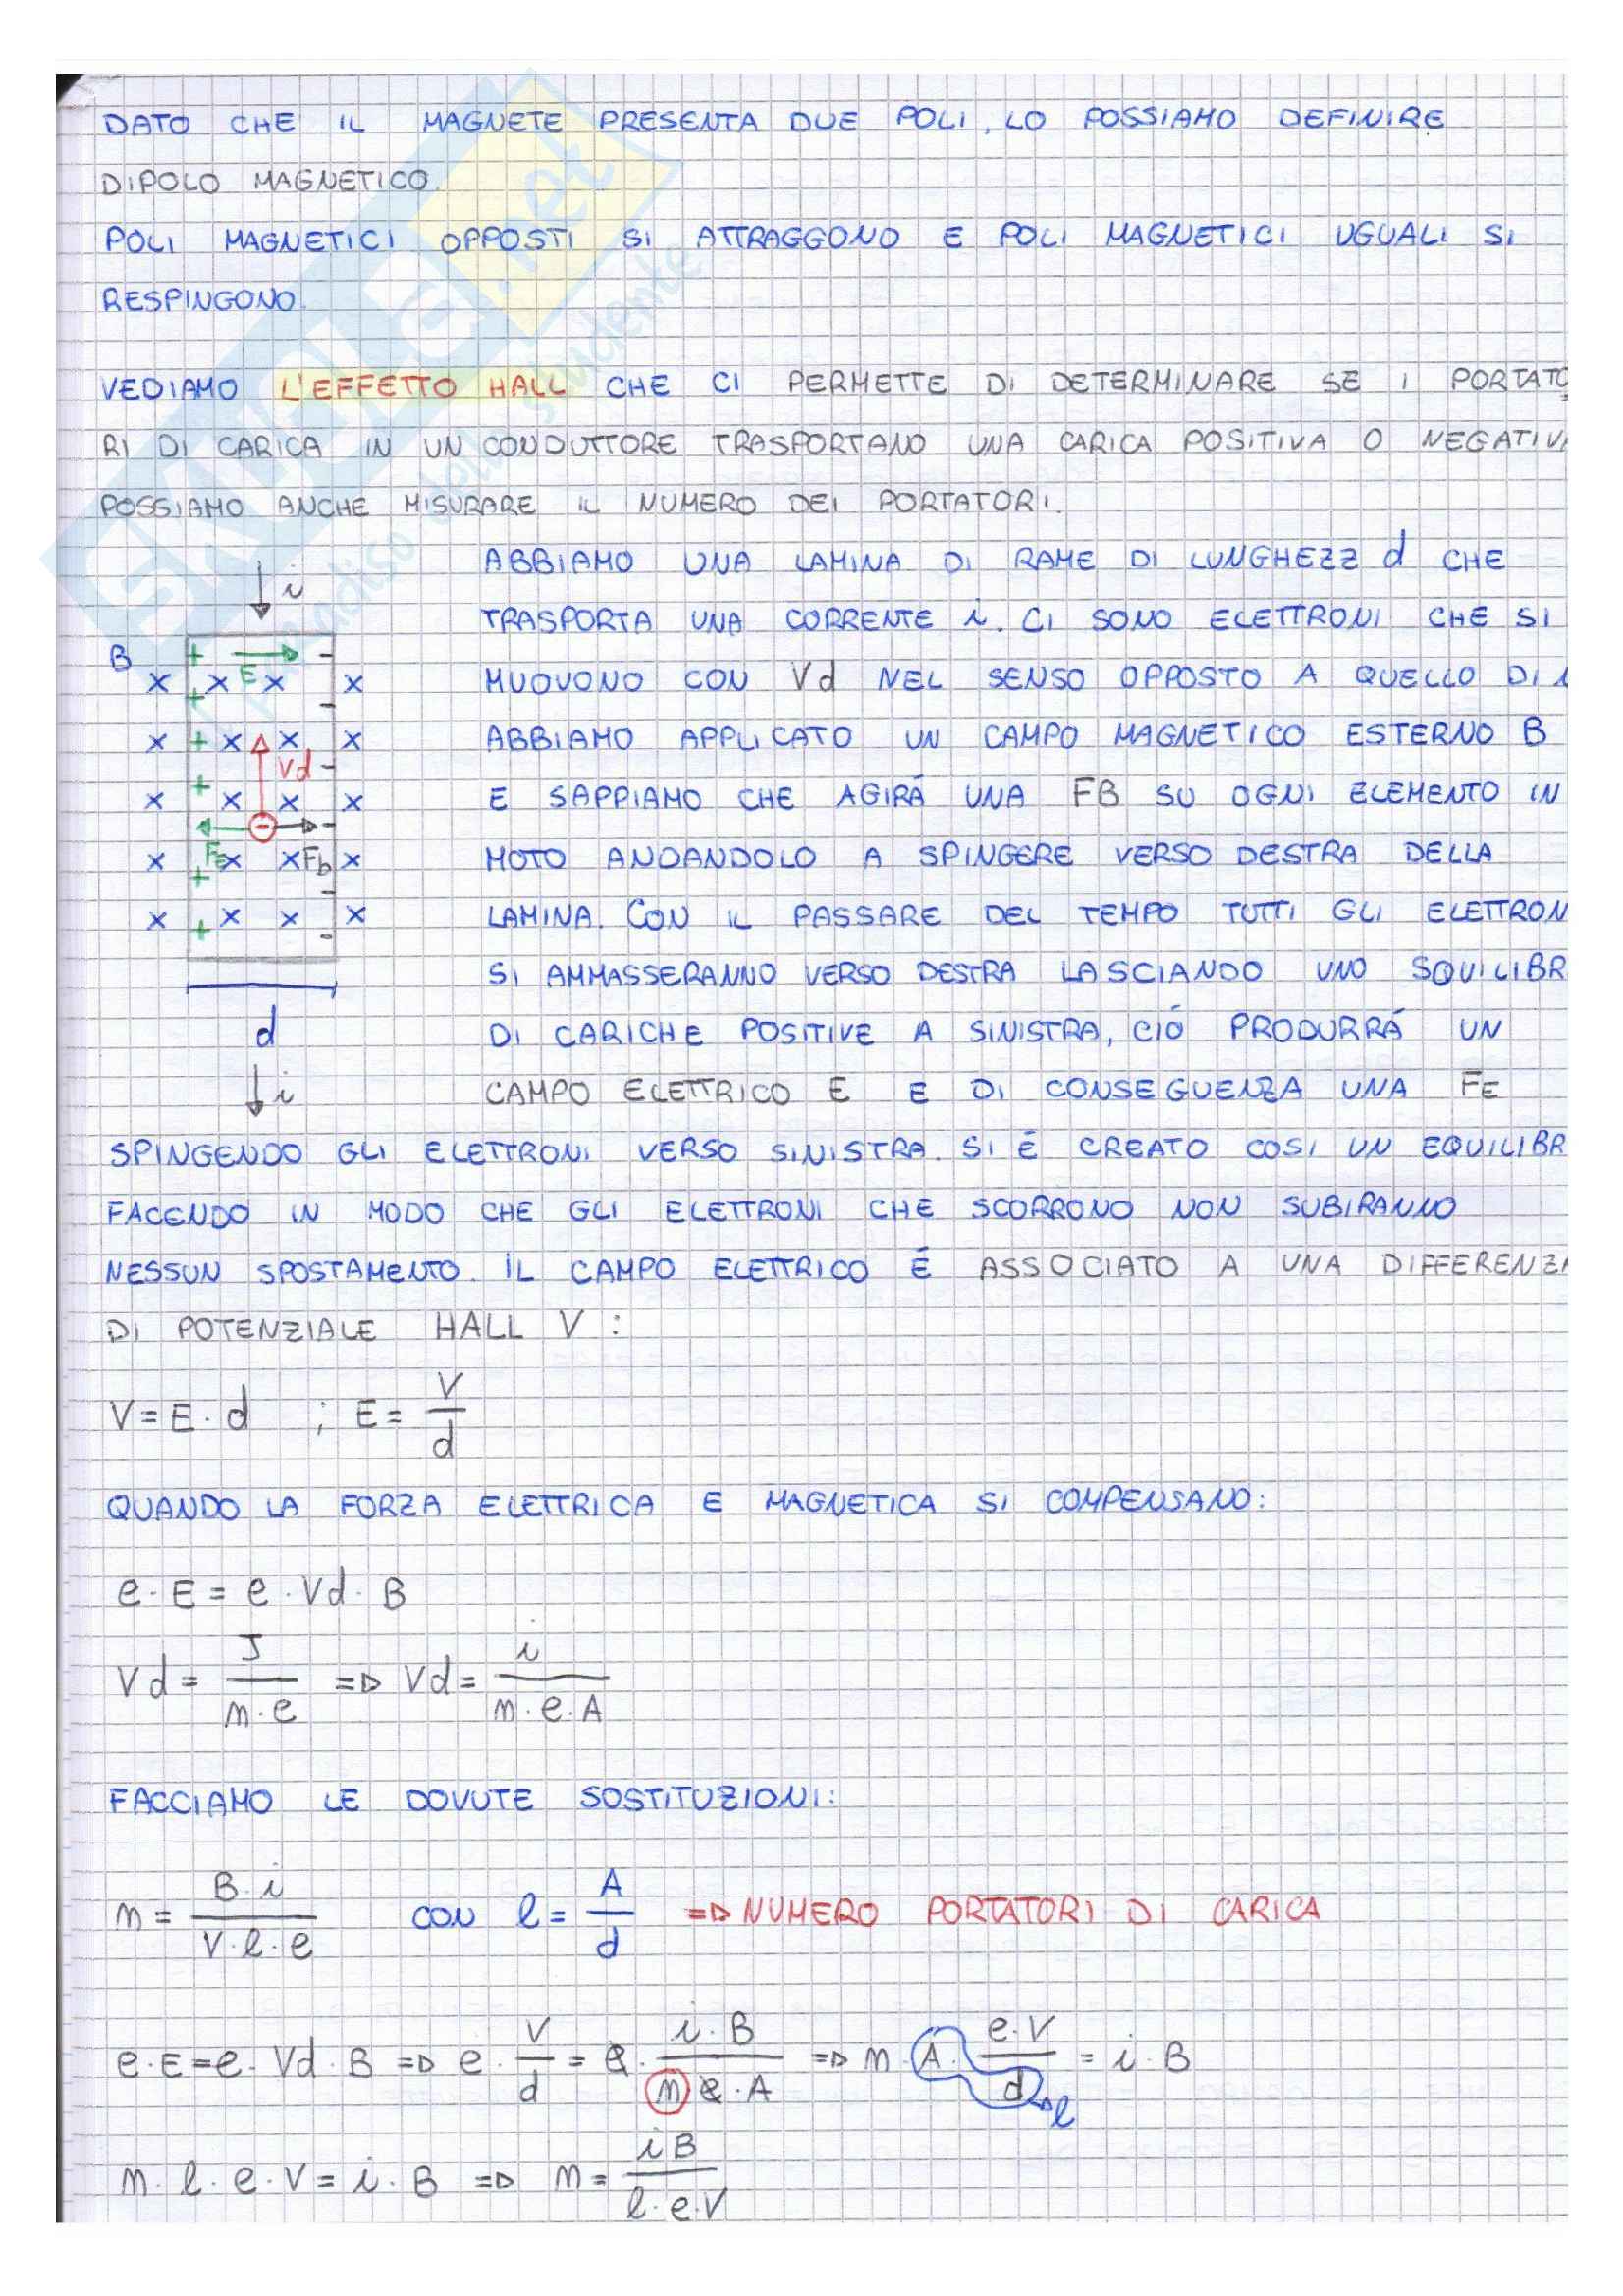 DATO CHE IL MAGNETE PRESENTA DUE POLI, LO POSSIAMO DEFINIRE
DIPOLO MAGNETICO.
POLI MAGNETICI OPPOSTI SI ATTRAGGONO E POLI MAGNETICI UGUALI SI
RESPINGONO.
VEDIAMO L'EFFETTO HALL CHE CI PERMETTE DI DETERMINARE SE I PORTATO
RI DI CARICA IN UN CONDUTTORE TRASPORTANO UNA CARICA POSITIVA O NEGATIVA
POSSIAMO ANCHE MISURARE IL NUMERO DEI PORTATORI.
ABBIAMO UNA LAMINA DI RAME DI LUNGHEZZ d CHE
TRASPORTA UNA CORRENTE i. CI SONO ELETTRONI CHE SI
MUOVONO CON Vd NEL SENSO OPPOSTO A QUELLO DI i
ABBIAMO APPLICATO UN CAMPO MAGNETICO ESTERNO B
E SAPPIAMO CHE AGIRÁ UNA FB SU OGNI ELEMENTO IN
MOTO ANDANDOLO A SPINGERE VERSO DESTRA DELLA
LAMINA. CON IL PASSARE DEL TEMPO TUTTI GLI ELETTRON
SI AMMASSERANNO VERSO DESTRA LASCIANDO UNO SQUILIBR
DI CARICHE POSITIVE A SINISTRA, CIÓ PRODURRÁ UN
CAMPO ELETTRICO E E DI CONSEGUENZA UNA FE
i
B
+ E -
x x x x
Vd
Fe Fb
d
i
SPINGENDO GLI ELETTRONI VERSO SINISTRA. SI É CREATO COSI UN EQUILIBR
FACENDO IN MODO CHE GLI ELETTRONI CHE SCORRONO NON SUBIRANNO
NESSUN SPOSTAMENTO. IL CAMPO ELETTRICO É ASSOCIATO A UNA DIFFERENZA
DI POTENZIALE HALL V :
V = E · d ; E = V/d
QUANDO LA FORZA ELETTRICA E MAGNETICA SI COMPENSANO:
e · E = e · Vd · B
Vd = J/(n · e) => Vd = i/(n · e · A)
FACCIAMO LE DOVUTE SOSTITUZIONI:
n = B · i/(V · l · e) CON l = A/d => NUMERO PORTATORI DI CARICA
e · E = e · Vd · B => e · V/d = e · i · B/(n e · A) => n · A · e · V/d = i · B
l
n · l · e · V = i · B => n = i B/(l · e · V)